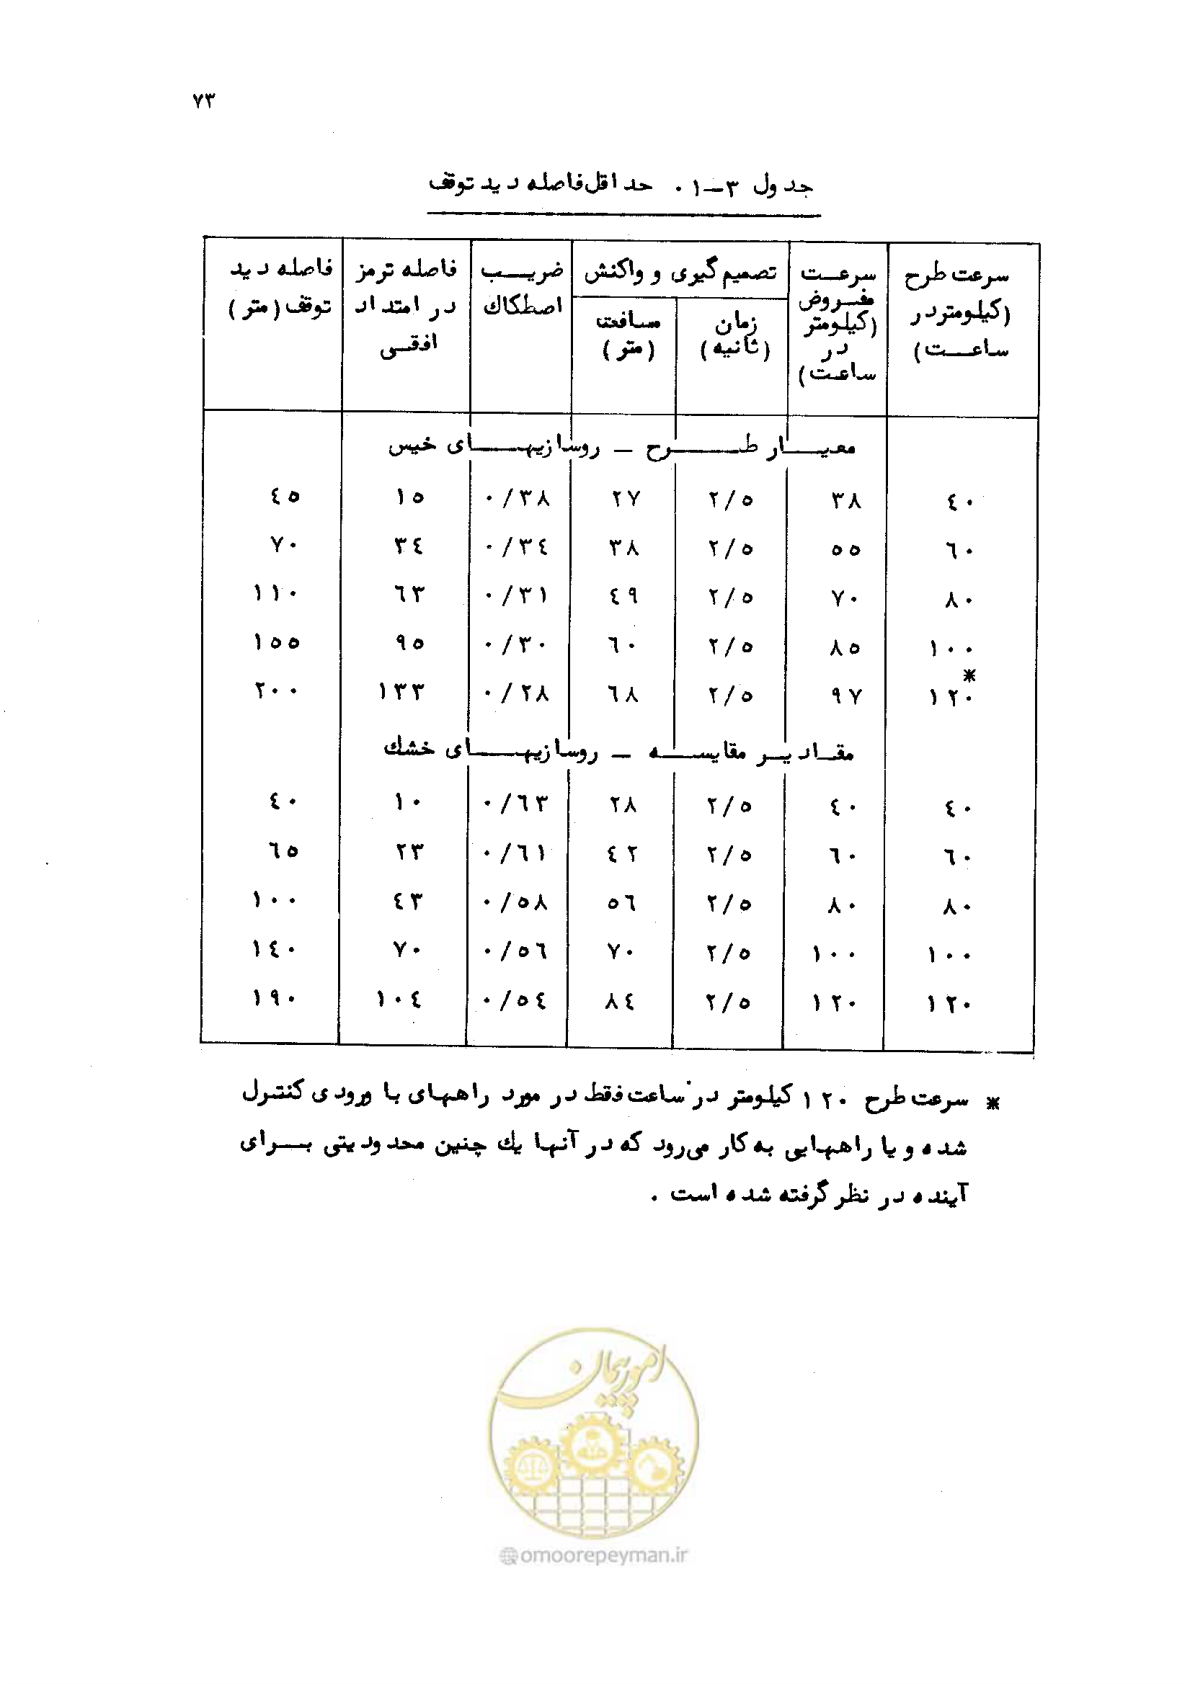 ۷۳
جدول ۳-۱ . حداقل فاصله دید توقف
سرعت طرح (کیلومتر در ساعت) | سرعت مفروض (کیلومتر در ساعت) | تصمیم گیری و واکنش | ضریب اصطکاک | فاصله ترمز در امتداد افقی | فاصله دید توقف (متر)
زمان (ثانیه) | مسافت (متر)
معیار طرح - روسازیهای خیس
۴۰ | ۳۸ | ۲/۵ | ۲۷ | ۰/۳۸ | ۱۵ | ۴۵
۶۰ | ۵۵ | ۲/۵ | ۳۸ | ۰/۳۴ | ۳۴ | ۷۰
۸۰ | ۷۰ | ۲/۵ | ۴۹ | ۰/۳۱ | ۶۳ | ۱۱۰
۱۰۰ | ۸۵ | ۲/۵ | ۶۰ | ۰/۳۰ | ۹۵ | ۱۵۵
۱۲۰* | ۹۷ | ۲/۵ | ۶۸ | ۰/۲۸ | ۱۳۳ | ۲۰۰
مقادیر مقایسه - روسازیهای خشک
۴۰ | ۴۰ | ۲/۵ | ۲۸ | ۰/۶۳ | ۱۰ | ۴۰
۶۰ | ۶۰ | ۲/۵ | ۴۲ | ۰/۶۱ | ۲۳ | ۶۵
۸۰ | ۸۰ | ۲/۵ | ۵۶ | ۰/۵۸ | ۴۳ | ۱۰۰
۱۰۰ | ۱۰۰ | ۲/۵ | ۷۰ | ۰/۵۶ | ۷۰ | ۱۴۰
۱۲۰ | ۱۲۰ | ۲/۵ | ۸۴ | ۰/۵۴ | ۱۰۴ | ۱۹۰
* سرعت طرح ۱۲۰ کیلومتر در ساعت فقط در مورد راههای با ورودی کنترل
شده و یا راههایی به کار می‌رود که در آنها یک چنین محدودیتی برای
آینده در نظر گرفته شده است .
امور پیمان
@omoorepeyman.ir